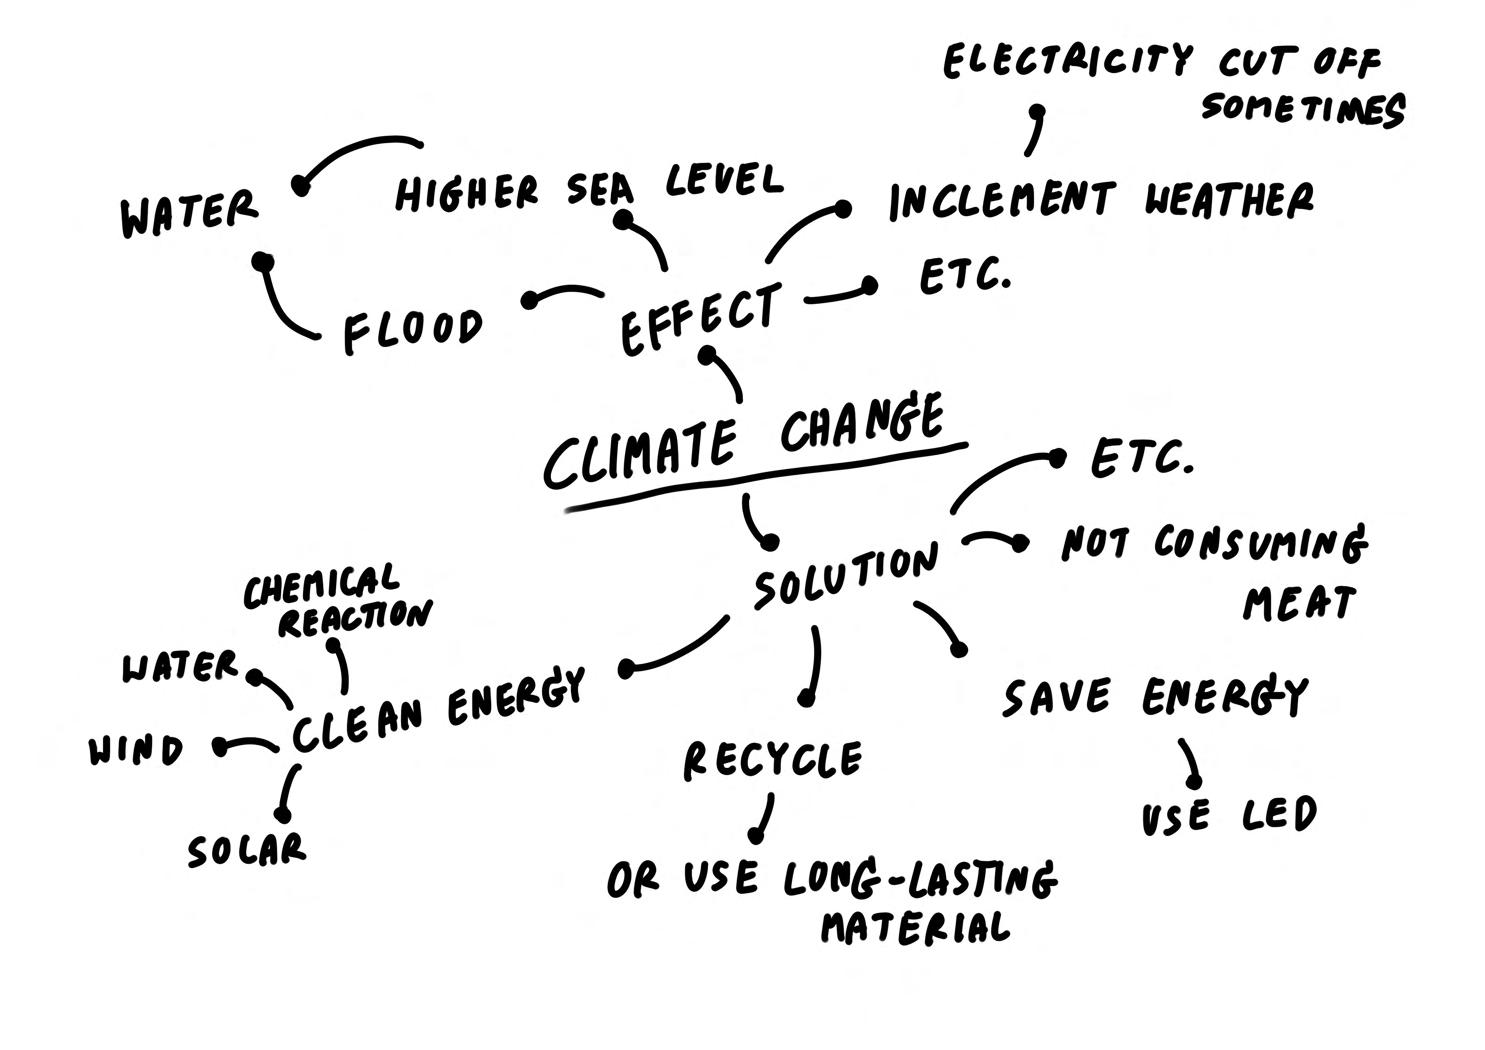 ELECTRICITY CUT OFF
SOMETIMES
WATER
HIGHER SEA LEVEL
INCLEMENT WEATHER
ETC.
FLOOD
EFFECT
CLIMATE CHANGE
ETC.
NOT CONSUMING
MEAT
SOLUTION
CHEMICAL
REACTION
WATER
CLEAN ENERGY
WIND
SOLAR
SAVE ENERGY
USE LED
RECYCLE
OR USE LONG-LASTING
MATERIAL